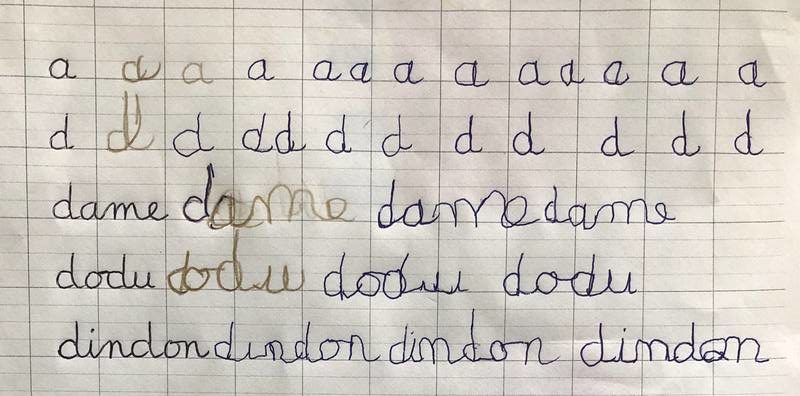 a a a a a a a a a a a a a
d d d d d d d d d d d d
dame dame dame dame
dodu dodu dodu dodu
dindon dindon dindon dindon